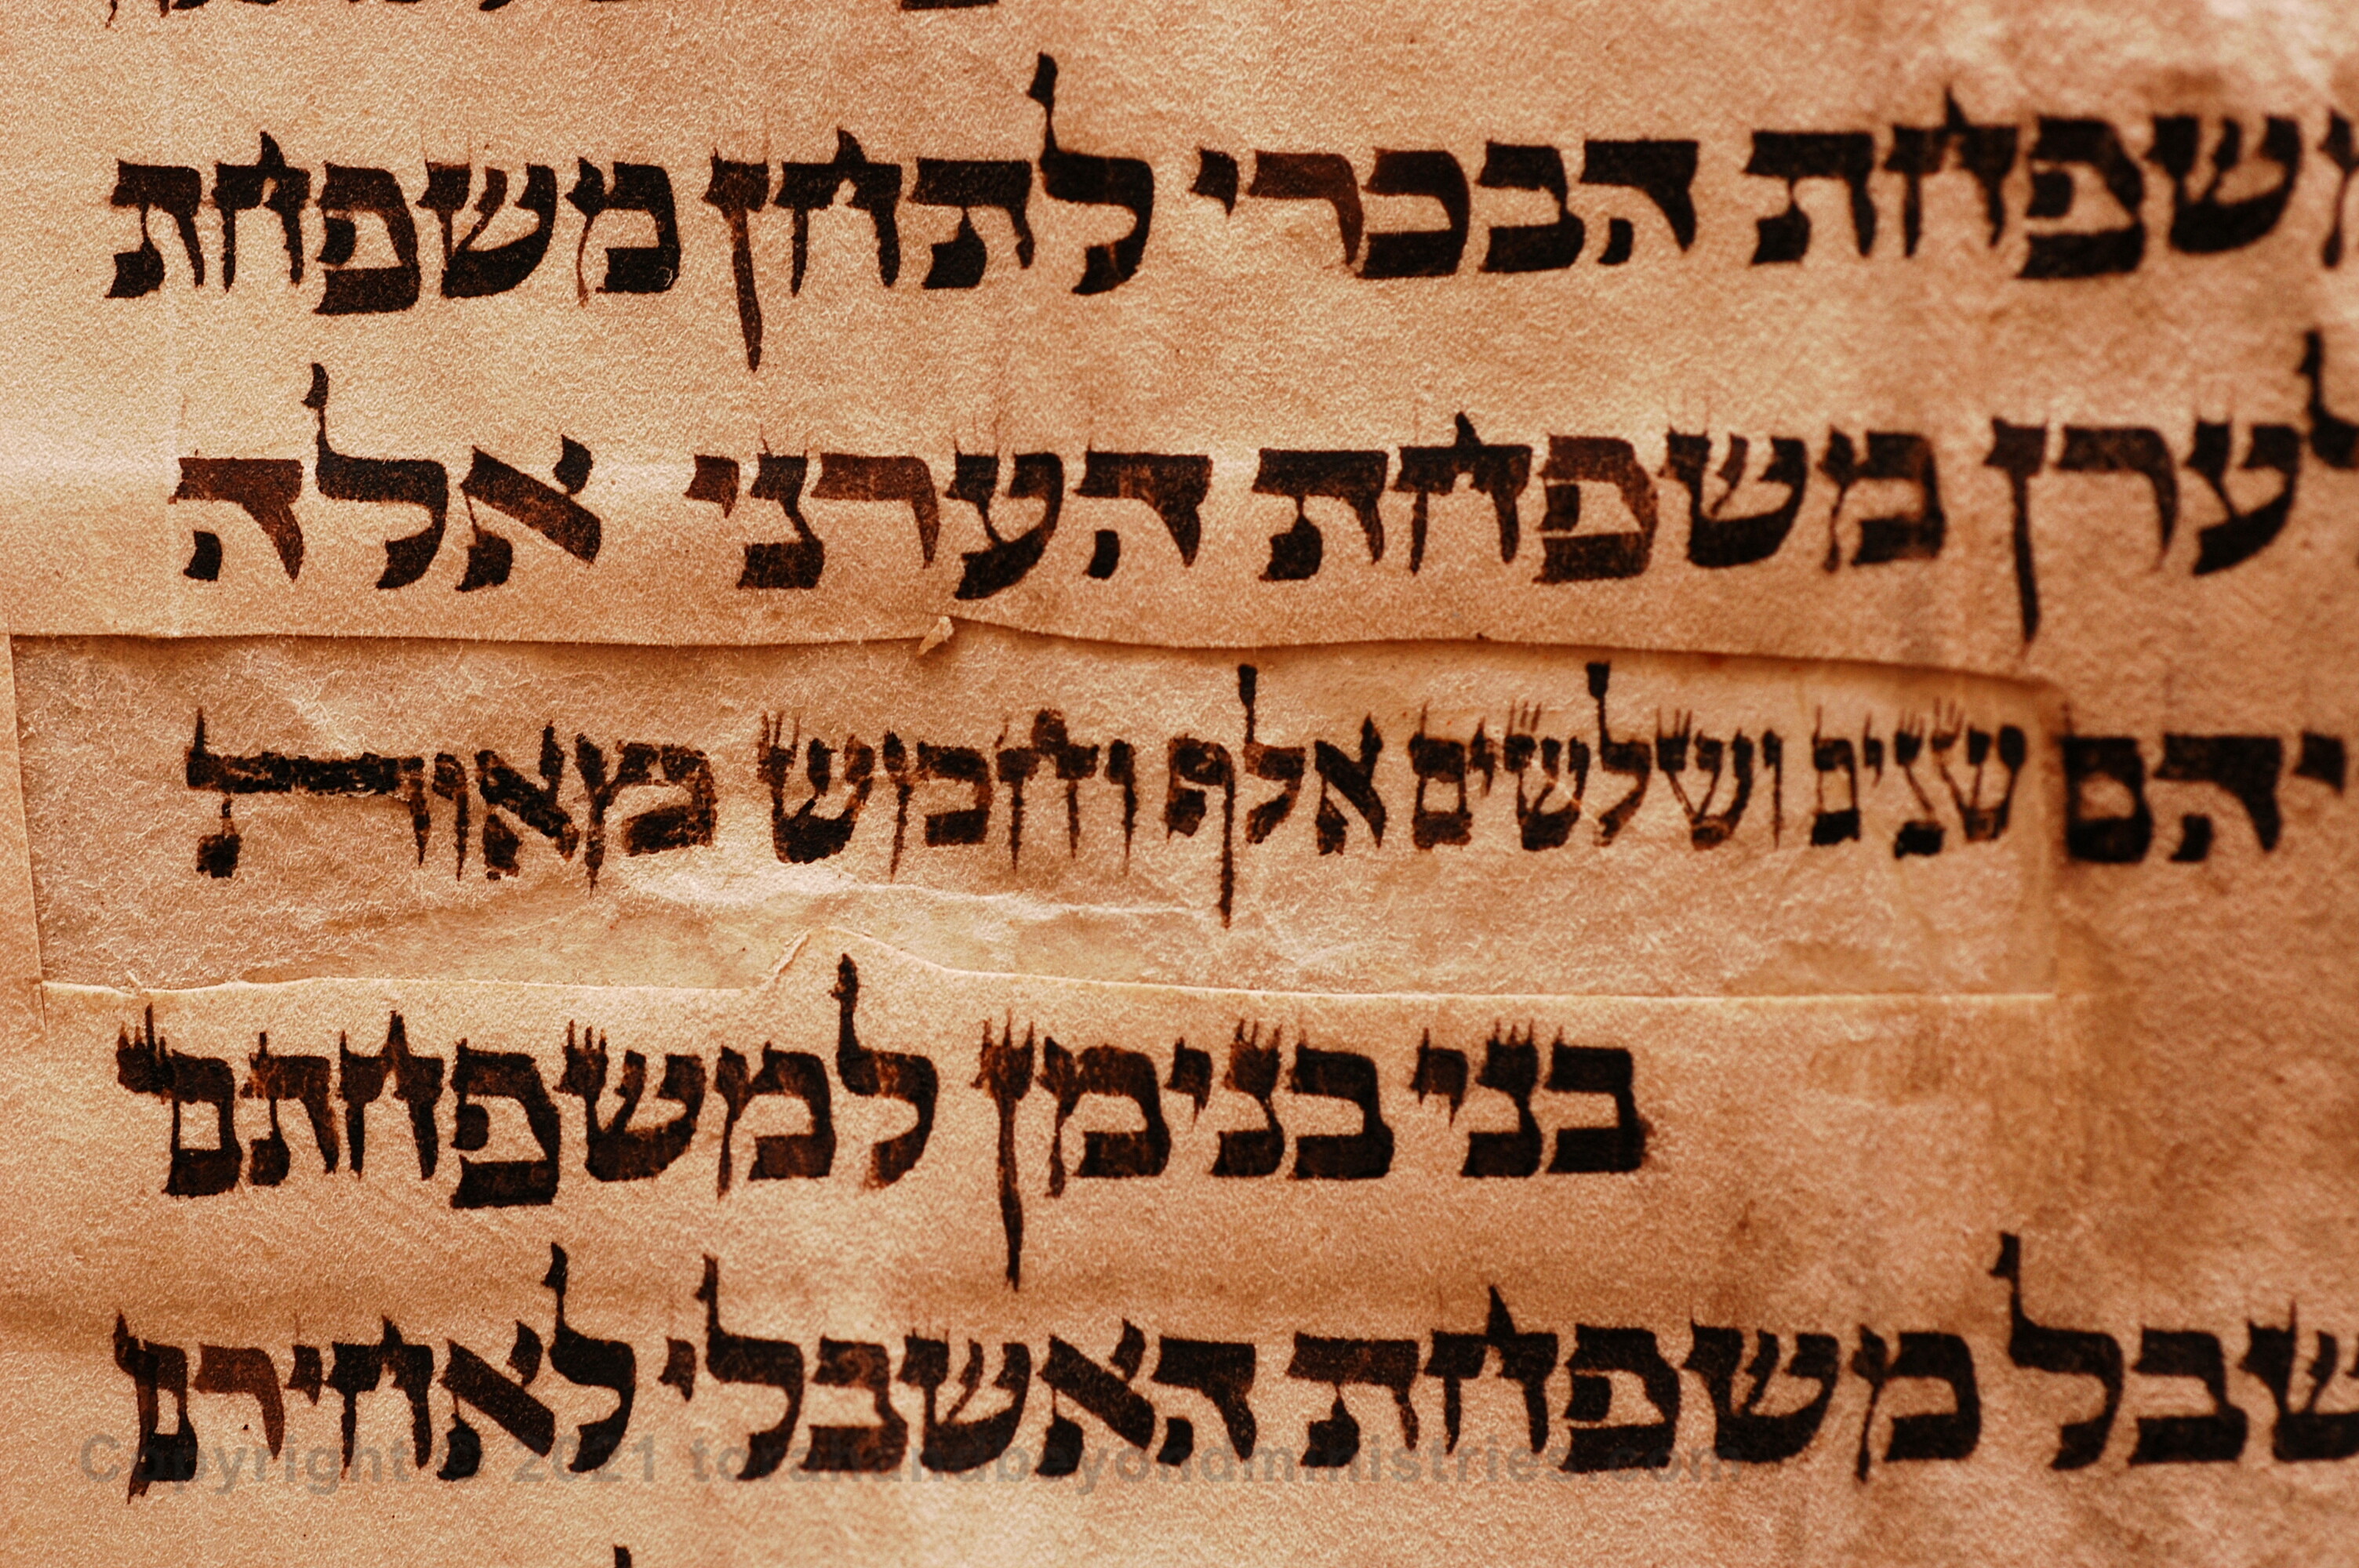 משפחת הבכרי לתחן משפחת
לערן משפחת הערני אלה
יהם שנים ושלשים אלף וחמש מאות
בני בנימן למשפחתם
שבל משפחת האשבלי לאחירם
Copyright © 2021 torahandbeyondministries.com